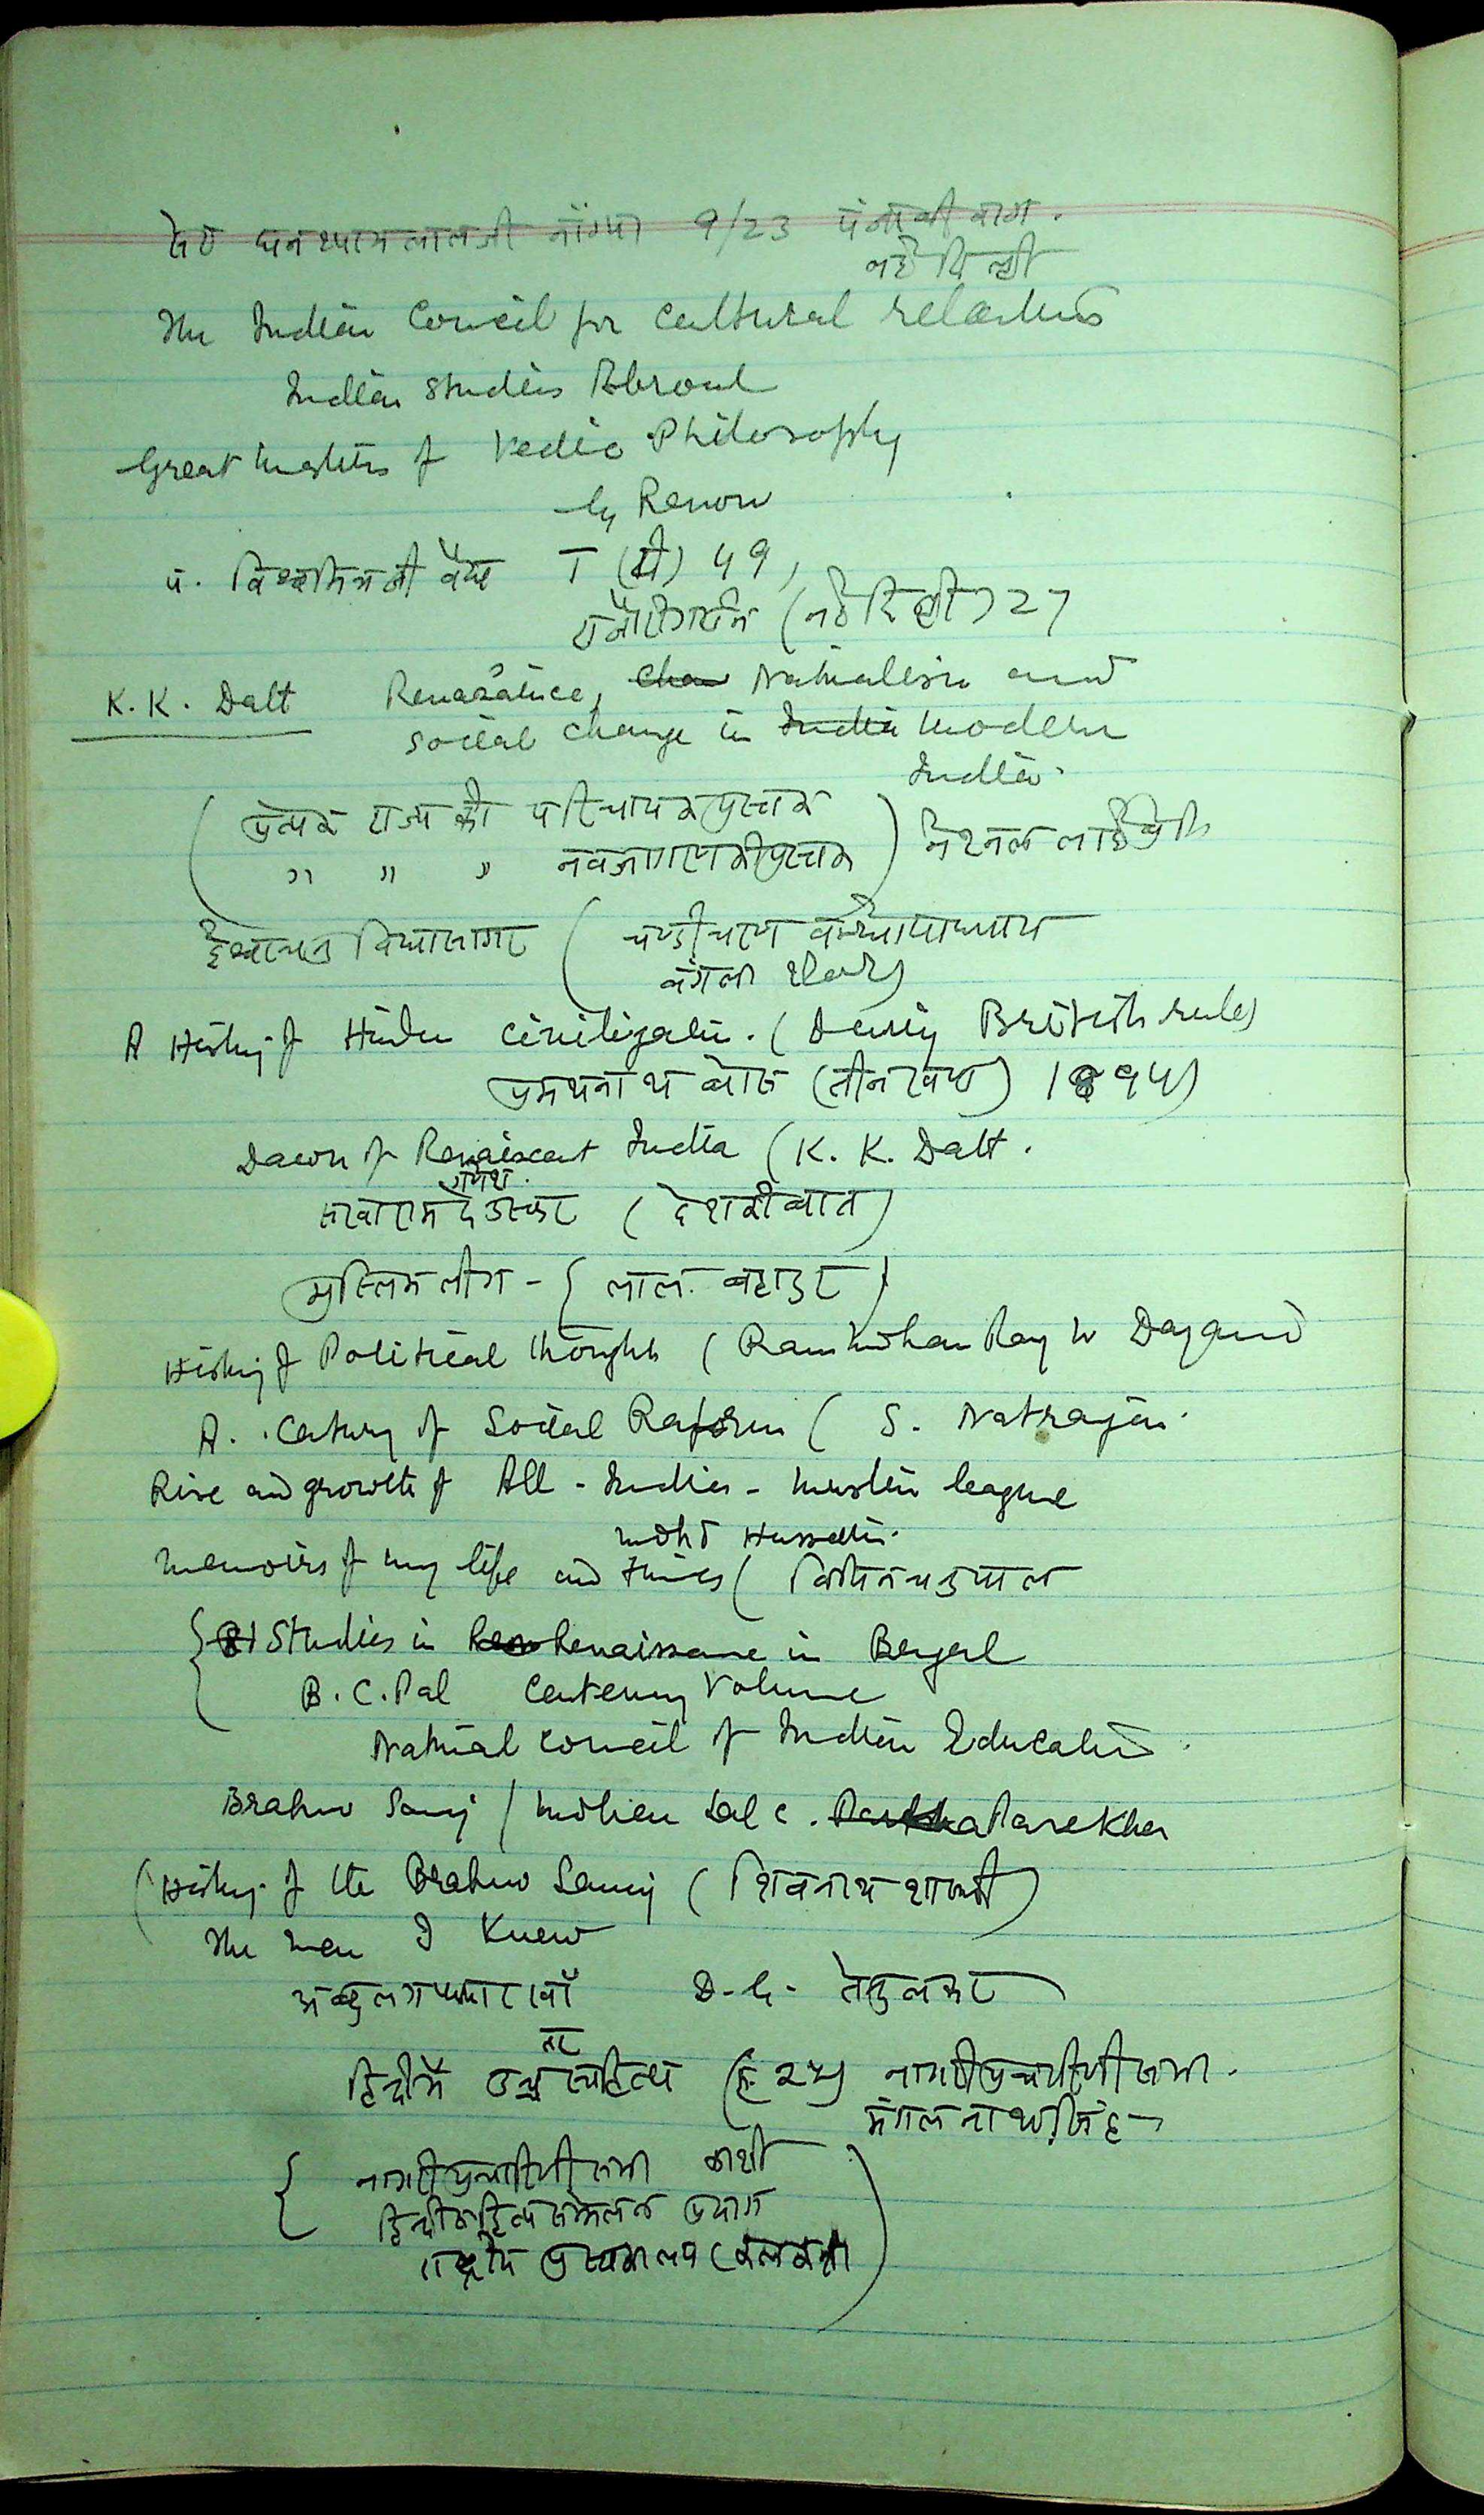 सेठ घनश्यामलालजी 9/23 पंजाबी बाग.
नई दिल्ली
The Indian Council for Cultural relations
Indian Studies Abroad
Great Masters of Vedic Philosophy
by Renou
पं. विश्वमित्रजी वैद्य T (डी) 49,
राजौरीगार्डन (नई दिल्ली) 27
K. K. Datt Renasaince, Nationalism and
social change in India modern
India.
प्रत्येक राज्य की परिचायक पुस्तक
" " " नवजागरण की पुस्तक ) नेशनल लाईब्रेरी
ईश्वरचन्द्र विद्यासागर ( चण्डीचरण बन्द्योपाध्याय
बंगला
A History of Hindu Civilization. (During British rule)
प्रमथनाथ बोस (तीन खण्ड) 1894)
Dawn of Renaiscent India (K. K. Datt.
गणेश
सखाराम देउस्कर ( देश की बात )
मुस्लिम लीग - { लाल बहादुर }
History of Political thoughts ( Ram Mohan Roy to Dayanand
A. Century of Social Reform ( S. Natrajan.
Rise and growth of All - India - Muslim league
Mohd Hussain.
Memoirs of my life and times ( विपिनचन्द्रपाल
Studies in Renaissance in Bengal
B. C. Pal Centenary Volume
National Council of Indian Education
Brahmo Samaj / Mohan Lal C. Parekha
(History of the Brahmo Samaj ( शिवनाथ शास्त्री )
The men I Knew
अब्दुलगफ्फारखाँ D. G. तेंदुलकर
हिन्दी में साहित्य नागरीप्रचारिणी सभा.
मंगलनाथ सिंह
{ नागरीप्रचारिणी सभा काशी
हिन्दी साहित्य सम्मेलन प्रयाग
राष्ट्रीय पुस्तकालय (कलकत्ता )